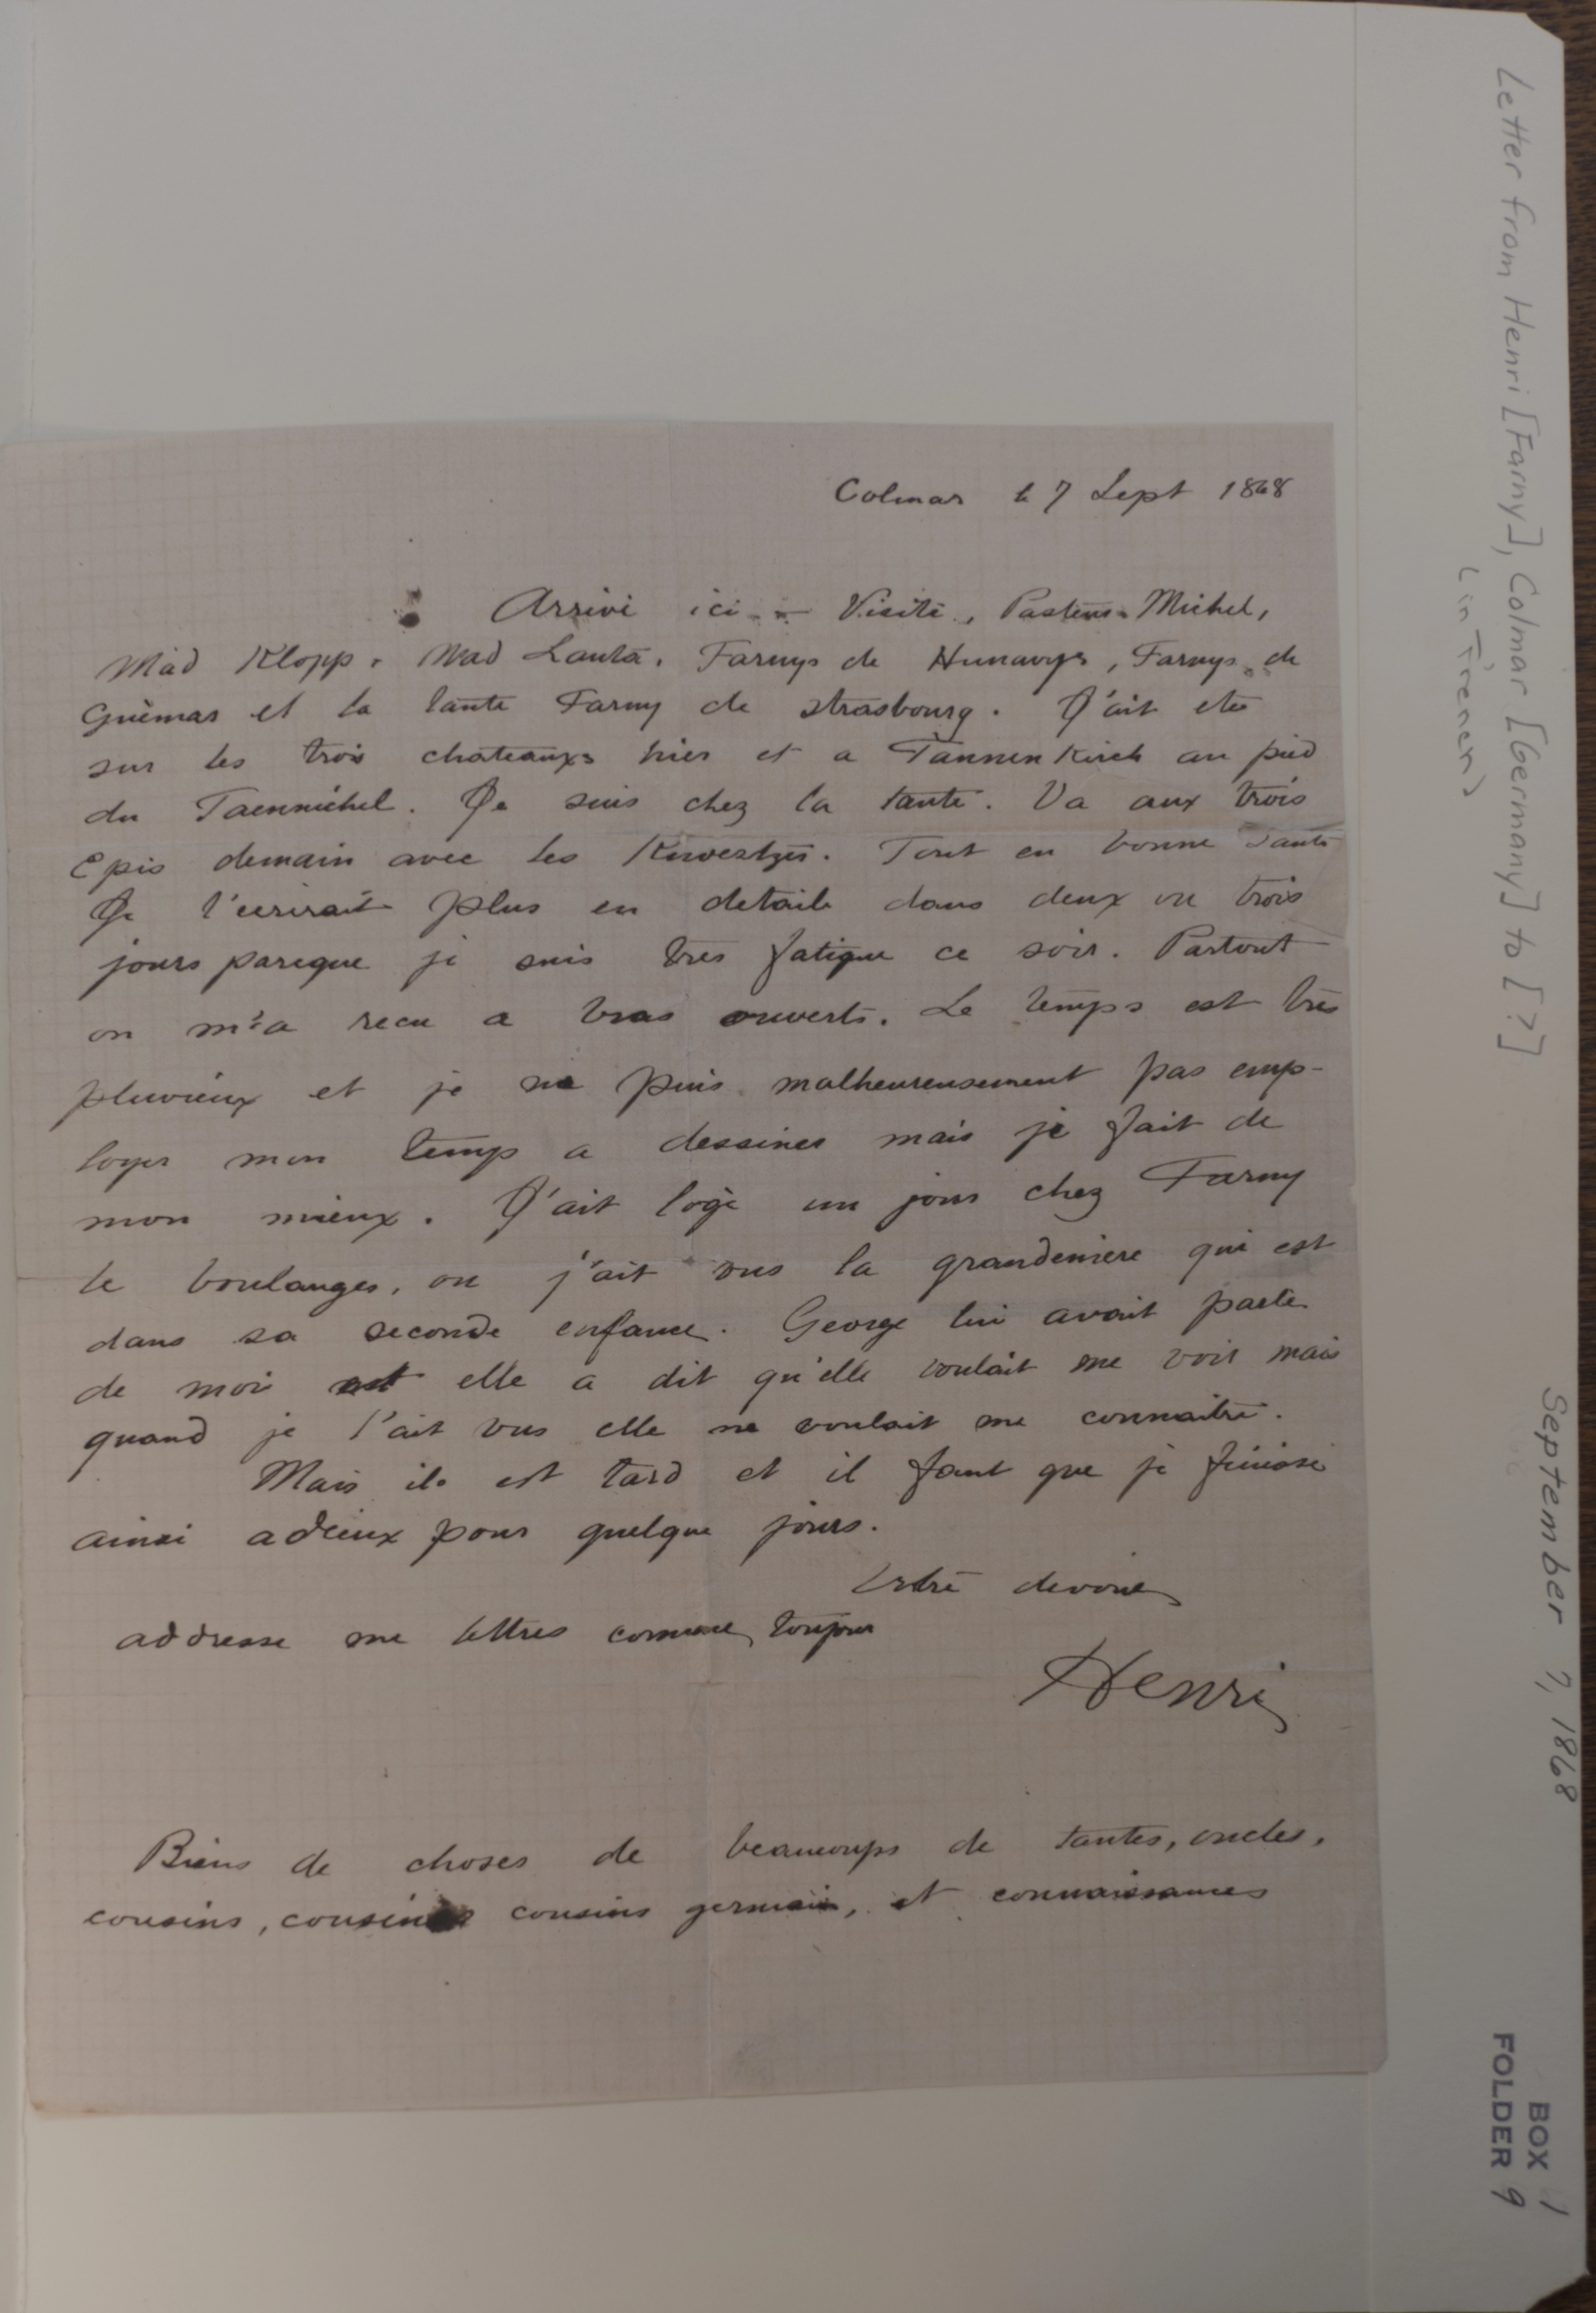 Colmar le 7 Sept 1868
Arrivé ici - Visité, Pasteur Michel,
Mad Klopp. Mad Lauta. Farnys de Hunawyr, Farnys de
Guémar et la tante Farny de Strasbourg. J'ait eté
sur les trois chateaux hier et a Tannenkirch au pied
du Taennichel. Je suis chez la tante. Va aux trois
Epis demain avec les Tout en bonne santé
Je t'ecrirait plus en detaile dans deux ou trois
jours pareque je suis tres fatigue ce soir. Partout
on m'a recu a bras ouverts. Le temps est très
pluvieux et je ne puis malheureusement pas emp-
loyer mon temp a dessiner mais je fait de
mon mieux. J'ait logé un jour chez Farny
le boulanger, ou j'ait vus la grandemere qui est
dans sa seconde enfance. George lui avait parle
de moi et elle a dit qu'elle voulait me voir mais
quand je l'ait vus elle ne voulait me connaitre.
Mais il est tard et il faut que je finisse
ainsi adieux pour quelque jours.
Votre devoué
addresse me lettres comme toujour
Henri
Biens de choses de beaucoups de tantes, oncles,
cousins, cousines cousins germain, et connaissances
Letter from Henri [Farny], Colmar [Germany] to [?]
(in French)
September 7, 1868
BOX 1
FOLDER 9